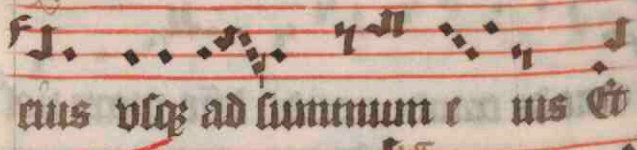 eius vsqꝫ ad summum e ius Et